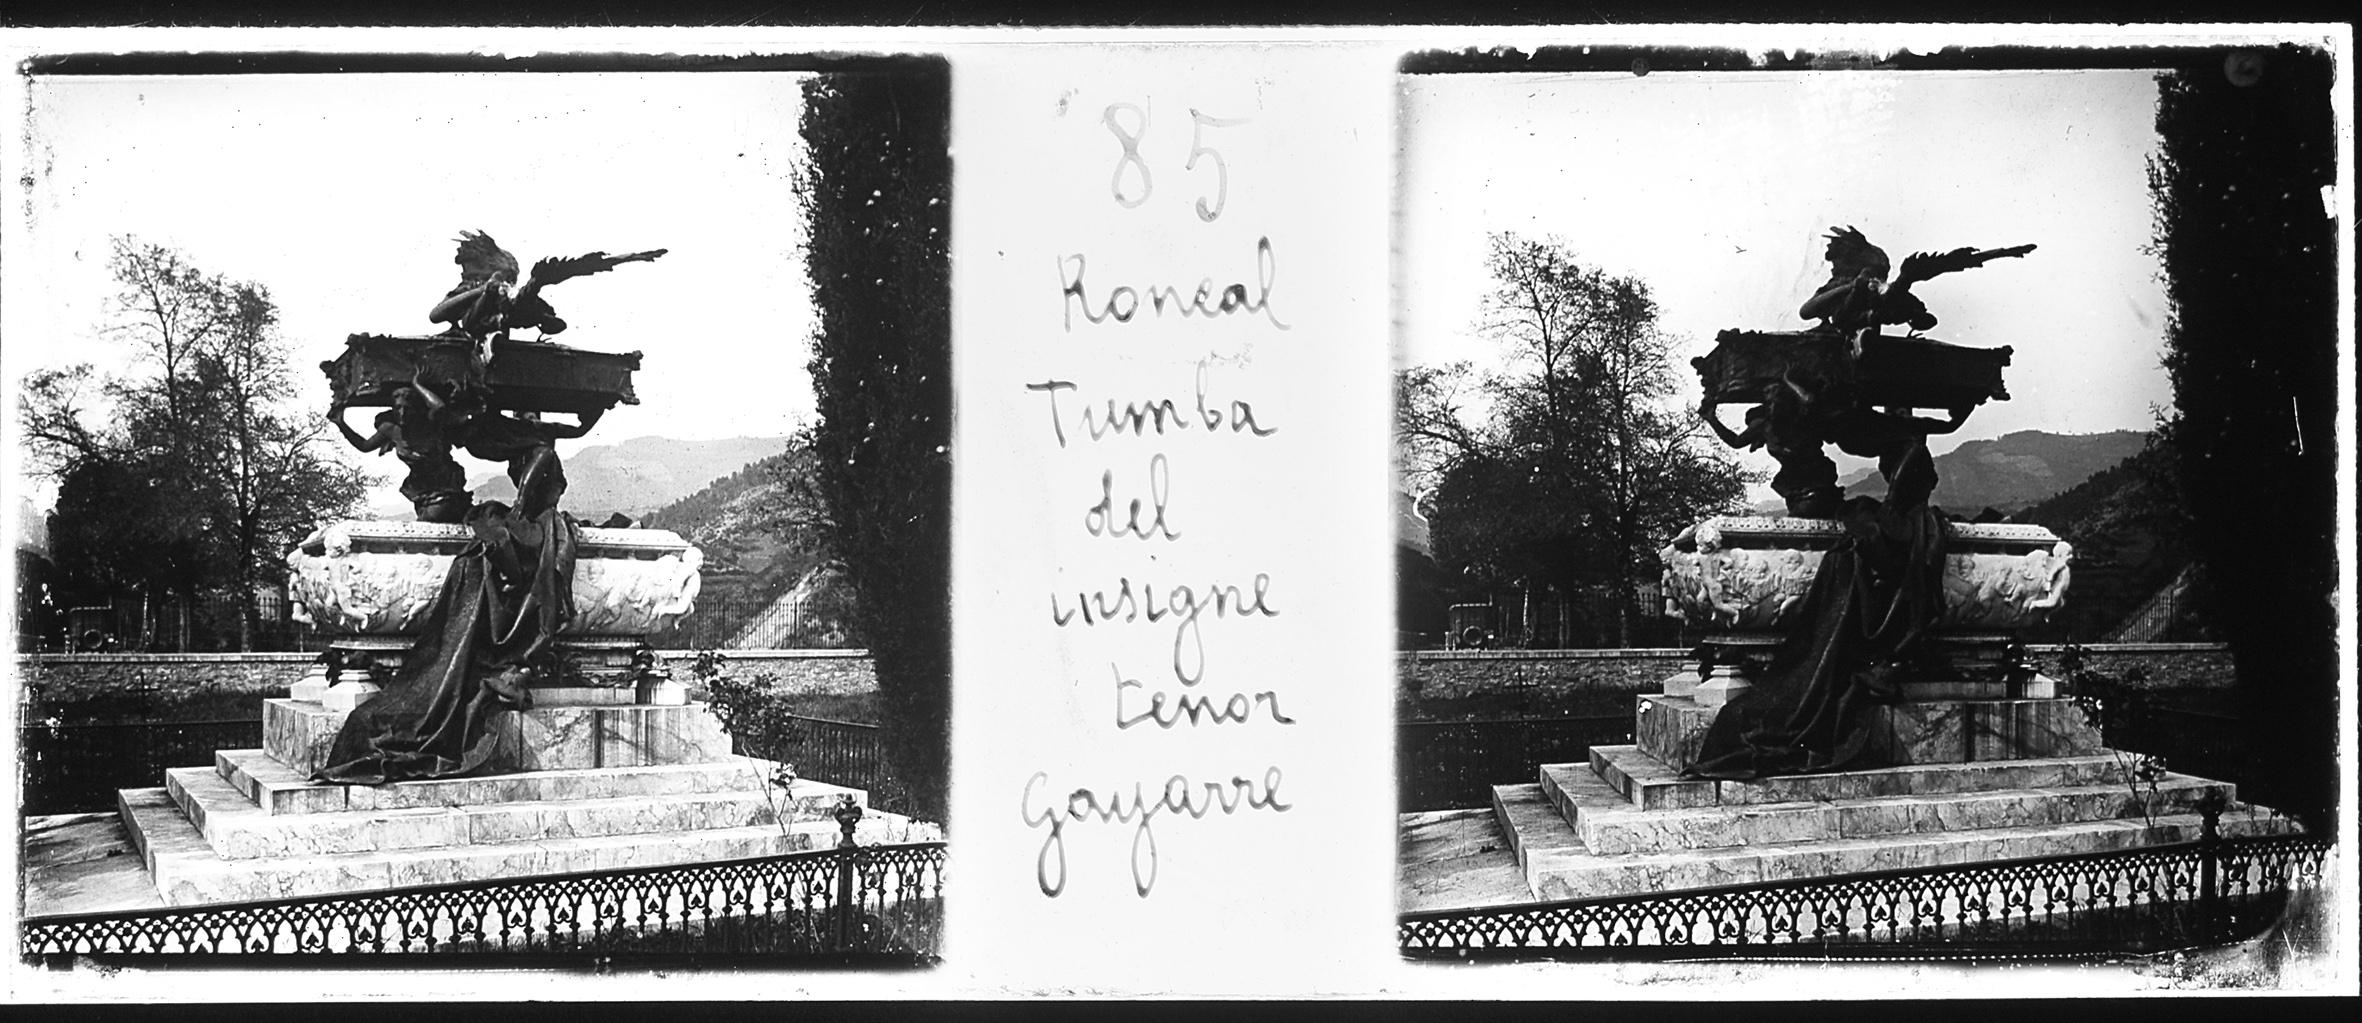 85
Roncal
Tumba
del
insigne
tenor
Gayarre